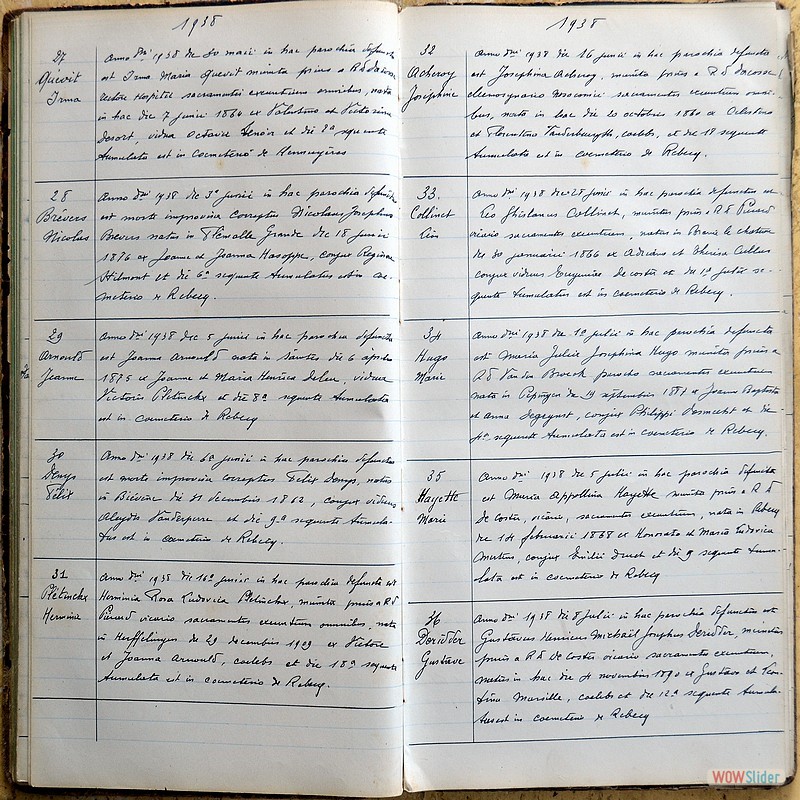 1938
27
Quévit
Irma
Anno Dni 1938 die 30 maii in hac parochia defuncta
est Irma Maria Quevit munita prius a R D
rectore Hospitii sacramentis exeuntium omnibus, nata
in hac die 7 junii 1860 ex Valentino et Victorina
vidua Octavii et die 2a sequente
tumulata est in coemeterio de Hennuyères
28
Brévers
Nicolas
Anno Dni 1938 die 3a junii in hac parochia defunctus
est morte improvisa correptus Nicolaus Josephus
Brevers natus in Flemalle Grande die 18 junii
1876 ex Joanne et Joanna Hasoppe, conjux Regina
Hilmont et die 6a sequente tumulatus est in coe-
meterio de Rebecq.
29
Arnould
Jeanne
Anno Dni 1938 die 5 junii in hac parochia defuncta
est Joanna Arnould nata in Saintes die 6 aprilis
1875 ex Joanne et Maria Henrica vidua
Victoris Pletinckx et die 8a sequente tumulata
est in coemeterio de Rebecq
30
Denys
Félix
Anno Dni 1938 die 6a junii in hac parochia defunctus
est morte improvisa correptus Felix Denys, natus
in Biévène die 31 decembris 1862, conjux viduus
Aleydis Vanderperre et die 9a sequente tumula-
tus est in coemeterio de Rebecq.
31
Plétinckx
Hermine
Anno Dni 1938 die 16a junii in hac parochia defuncta est
Herminia Rosa Ludovica Pletinckx, munita prius a R D
Pierard vicario sacramentis exeuntium omnibus, nata
in Herffelingen die 29 decembris 1909 ex Victore
et Joanna Arnould, coelebs et die 18a sequente
tumulata est in coemeterio de Rebecq.
1938
32
Acheroy
Joséphine
Anno Dni 1938 die 16 junii in hac parochia defuncta
est Josephina Acheroy, munita prius a R D
eleemosynario Nosocomii sacramentis exeuntium omni-
bus, nata in hac die 20 octobris 1860 ex Celestino
et Florentina Vandenberghe, coelebs, et die 18 sequente
tumulata est in coemeterio de Rebecq.
33
Collinet
Léon
Anno Dni 1938 die 28 junii in hac parochia defunctus est
Leo Ghislanus Collinet, munitus prius a R D Pierard
vicario sacramentis exeuntium, natus in Braine le chateau
die 30 januarii 1866 ex Adriano et Theresia
conjux viduus Eugeniae Decoster et die 1a julii se-
quente tumulatus est in coemeterio de Rebecq.
34
Hugo
Marie
Anno Dni 1938 die 1a julii in hac parochia defuncta
est Maria Julia Josephina Hugo munita prius a
R D Van den Broeck parocho sacramentis exeuntium
nata in Pepingen die 19 septembris 1887 ex Joanne Baptista
et Anna Degeynst, conjux Philippi Desmecht et die
4a sequente tumulata est in coemeterio de Rebecq.
35
Hayette
Marie
Anno Dni 1938 die 5 julii in hac parochia defuncta
est Maria Appollina Hayette munita prius a R D
De Coster, vicario, sacramentis exeuntium, nata in Rebecq
die 14 februarii 1868 ex Honorato et Maria Ludovica
Mertens, conjux Emilii et die 9 sequente tumu-
lata est in coemeterio de Rebecq
36
Deridder
Gustave
Anno Dni 1938 die 8 julii in hac parochia defunctus est
Gustavus Henricus Michaël Josephus Deridder, munitus
prius a R D De Coster vicario sacramentis exeuntium,
natus in hac die 4 novembris 1890 ex Gustavo et Leon-
tina Marsille, coelebs et die 12a sequente tumula-
tus est in coemeterio de Rebecq
WOWSlider